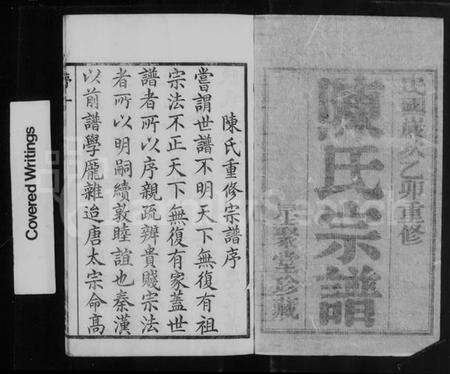 歲次乙卯重修
陳氏宗譜
聚堂珍藏
陳氏重修宗譜序
嘗謂世譜不明天下無復有祖
宗法不正天下無復有家蓋世
譜者所以序親疏辨貴賤宗法
者所以明嗣續敦睦誼也秦漢
以前譜學龐雜迨唐太宗命高
Covered Writings